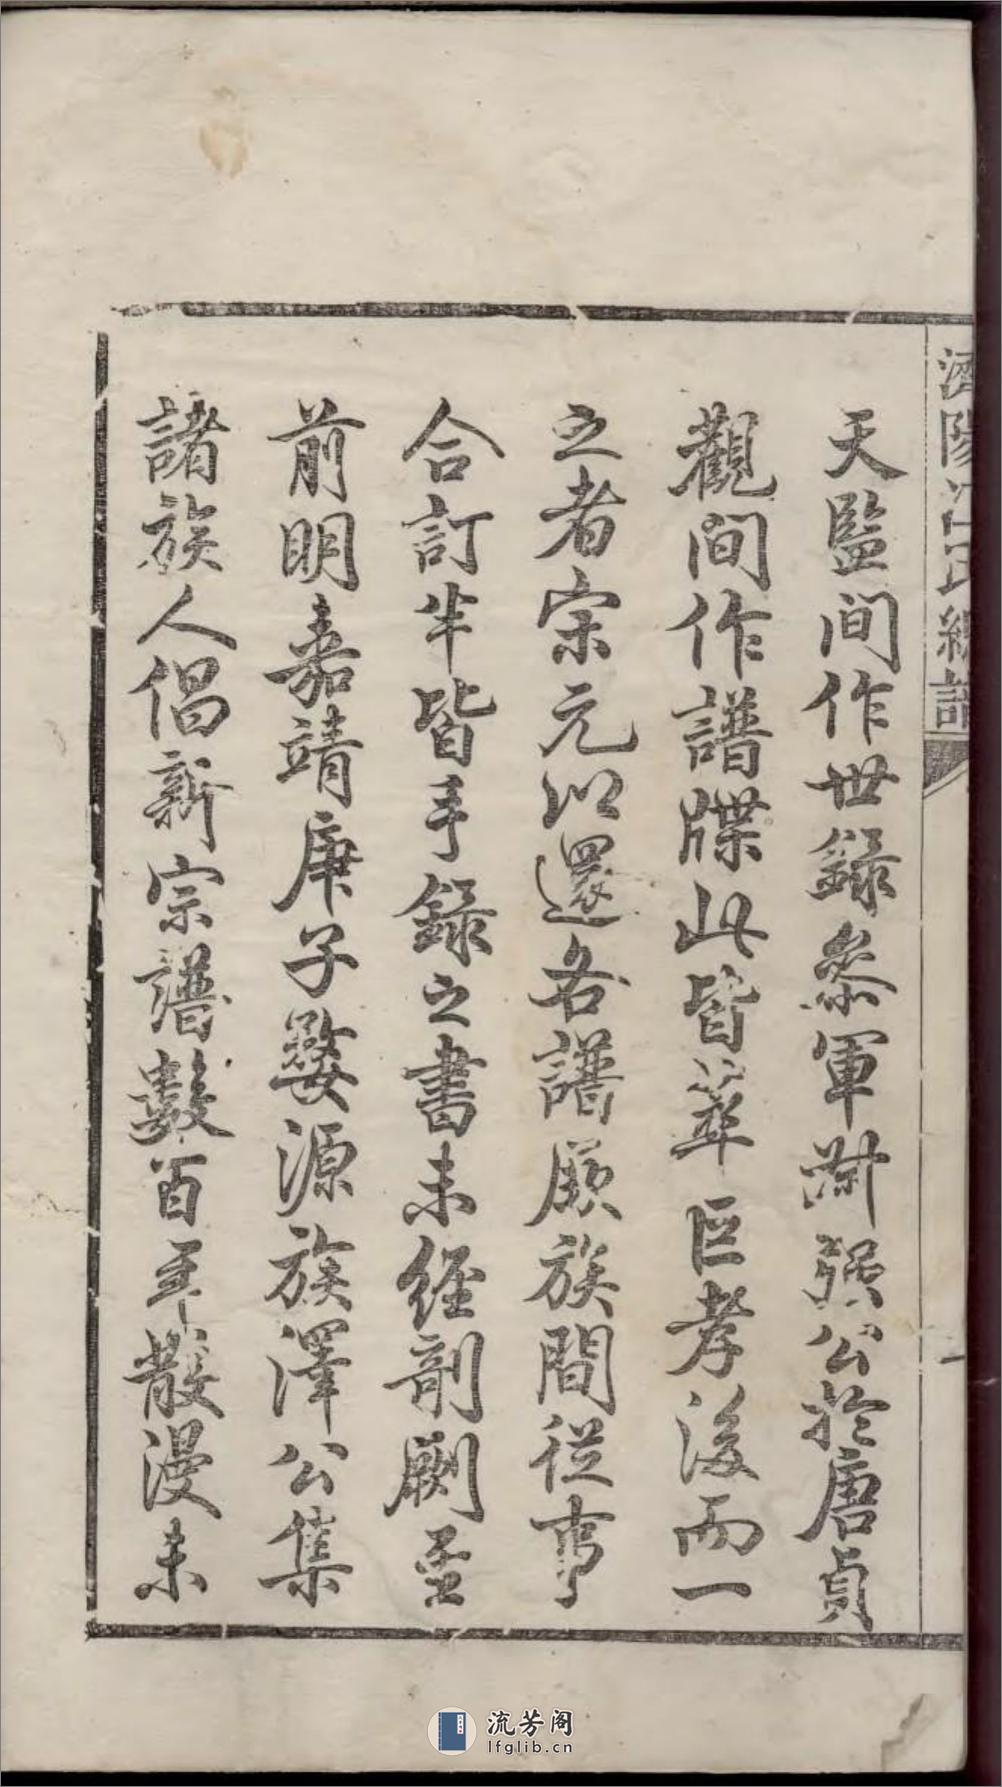 濟陽江氏總譜
天監間作世錄參軍附强公於唐貞
觀间作譜牒此皆莘巨孝後而一
之者宗元以還各譜厥族間從事
合訂半皆手錄之書未經剞劂至
前明嘉靖庚子婺源族澤公集
諸族人倡新宗譜數百年散漫未
流芳阁
lfglib.cn